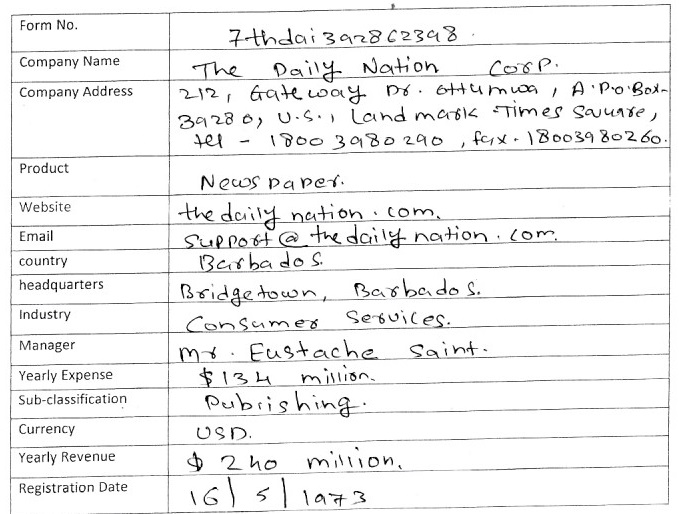 Form No. 7thdai392862398.
Company Name The Daily Nation Corp.
Company Address 212, Gateway Dr. Ottumwa, A.P.O.Box-
39280, U.S., Landmark-Times Square,
tel - 18003980290, fax-18003980260.
Product Newspaper.
Website thedailynation.com.
Email support@thedailynation.com.
country Barbados.
headquarters Bridgetown, Barbados.
Industry Consumer Services.
Manager Mr. Eustache Saint.
Yearly Expense $134 million.
Sub-classification Publishing.
Currency USD.
Yearly Revenue $240 million.
Registration Date 16/5/1973